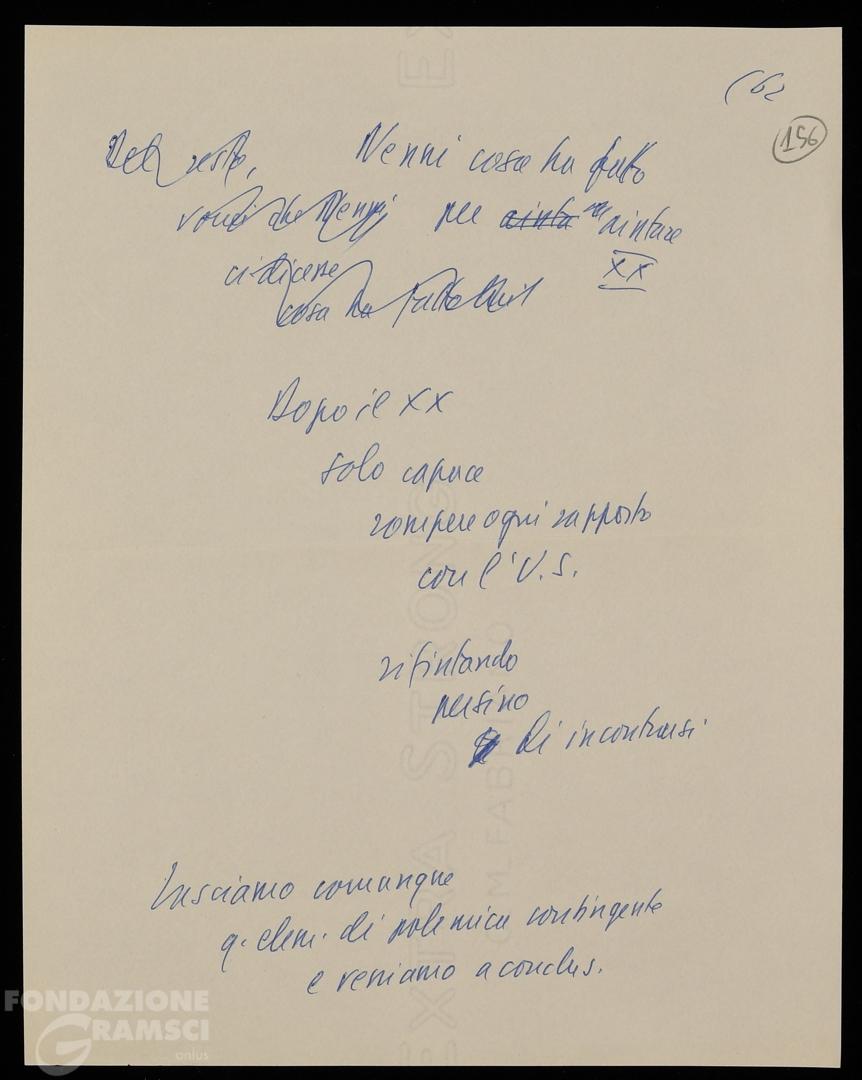 (62
156
Del resto, Nenni cosa ha fatto
vorrei che Nenni per aiuta aiutare
ci dicesse XX
cosa ha fatto lui
Dopo il XX
solo capace
rompere ogni rapporto
con l'U.S.
rifiutando
persino
di incontrarsi
Lasciamo comunque
q. elem. di polemica contingente
e veniamo a conclus.
EXTRA STRONG
FONDAZIONE
GRAMSCI
onlus